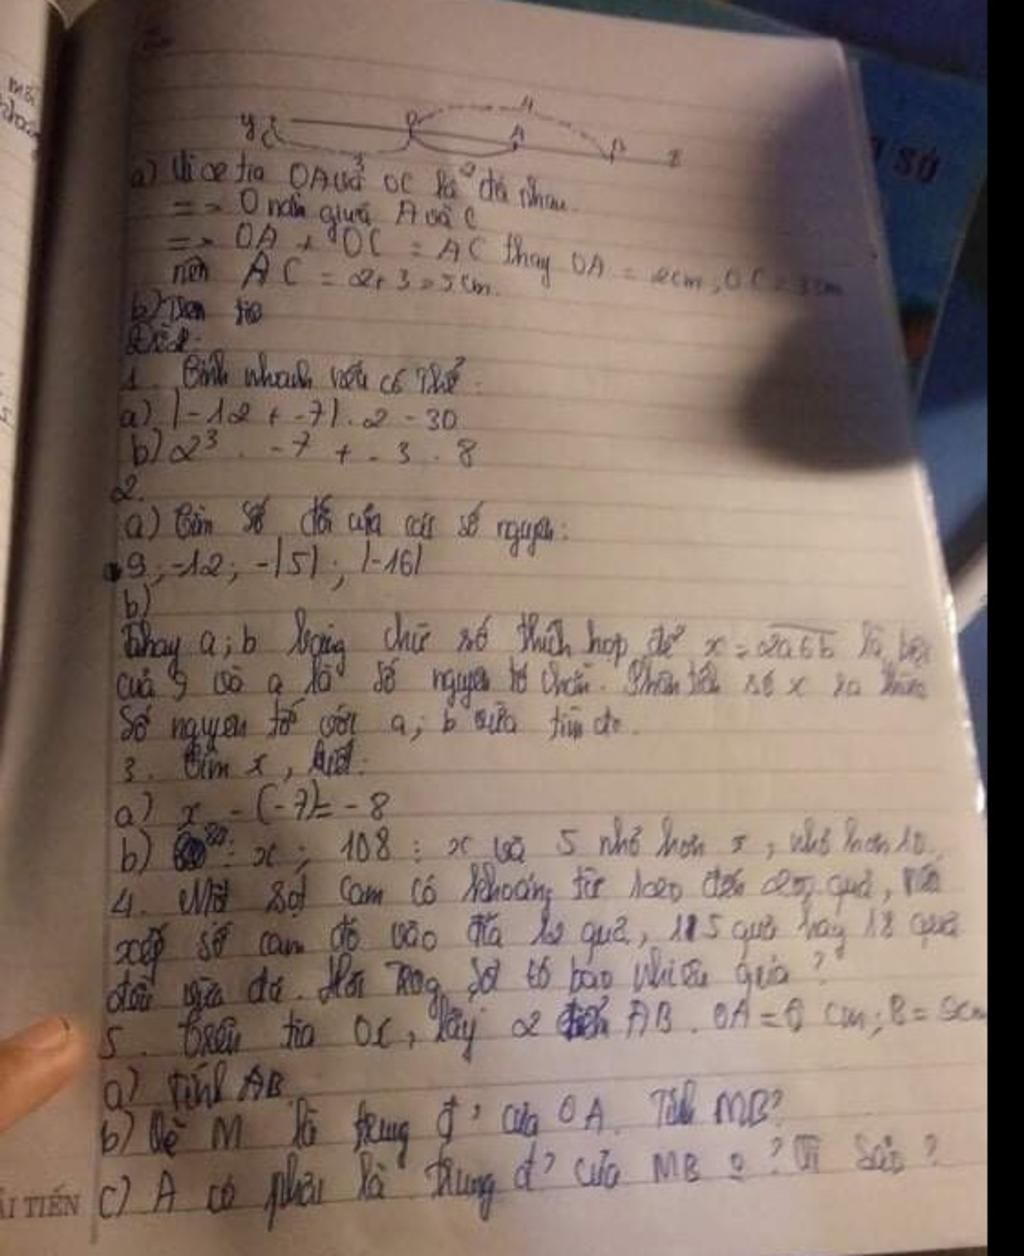 y O A B x
a) Vì tia OA và OC là đối nhau.
=> O nằm giữa A và C
=> OA + OC = AC thay OA = 2cm, OC = 3cm
nên AC = 2+3=5cm.
b) Trên tia
Đề 2:
1. Tính nhanh nếu có thể:
a) |-12 + -7| . 2 - 30
b) 2³ . -7 + - 3 . 8
2.
a) Tìm số đối của các số nguyên:
9; -12; -|5|; |-16|
b)
Thay a; b bằng chữ số thích hợp để x = 2a6b là
của 9 và a là số nguyên tố chẵn. Phân tích số x ra thừa
số nguyên tố với a; b vừa tìm đc.
3. Tìm x, biết:
a) x - (-7) = - 8
b) 80 : x ; 108 : x và 5 nhỏ hơn x, nhỏ hơn 10.
4. Một sọt cam có khoảng từ đến quả,
xếp số cam đó vào đĩa 12 quả, 15 quả hay 18 quả
đều vừa đủ. Hỏi trog sọt có bao nhiêu quả?
5. Trên tia Ox, lấy 2 điểm AB. OA = 6 cm; B = 9cm
a) Tính AB.
b) M là trung đ' của OA. Tính MB?
c) A có phải là trung đ' của MB o? Vì sao?
SỐ
ẢI TIẾN